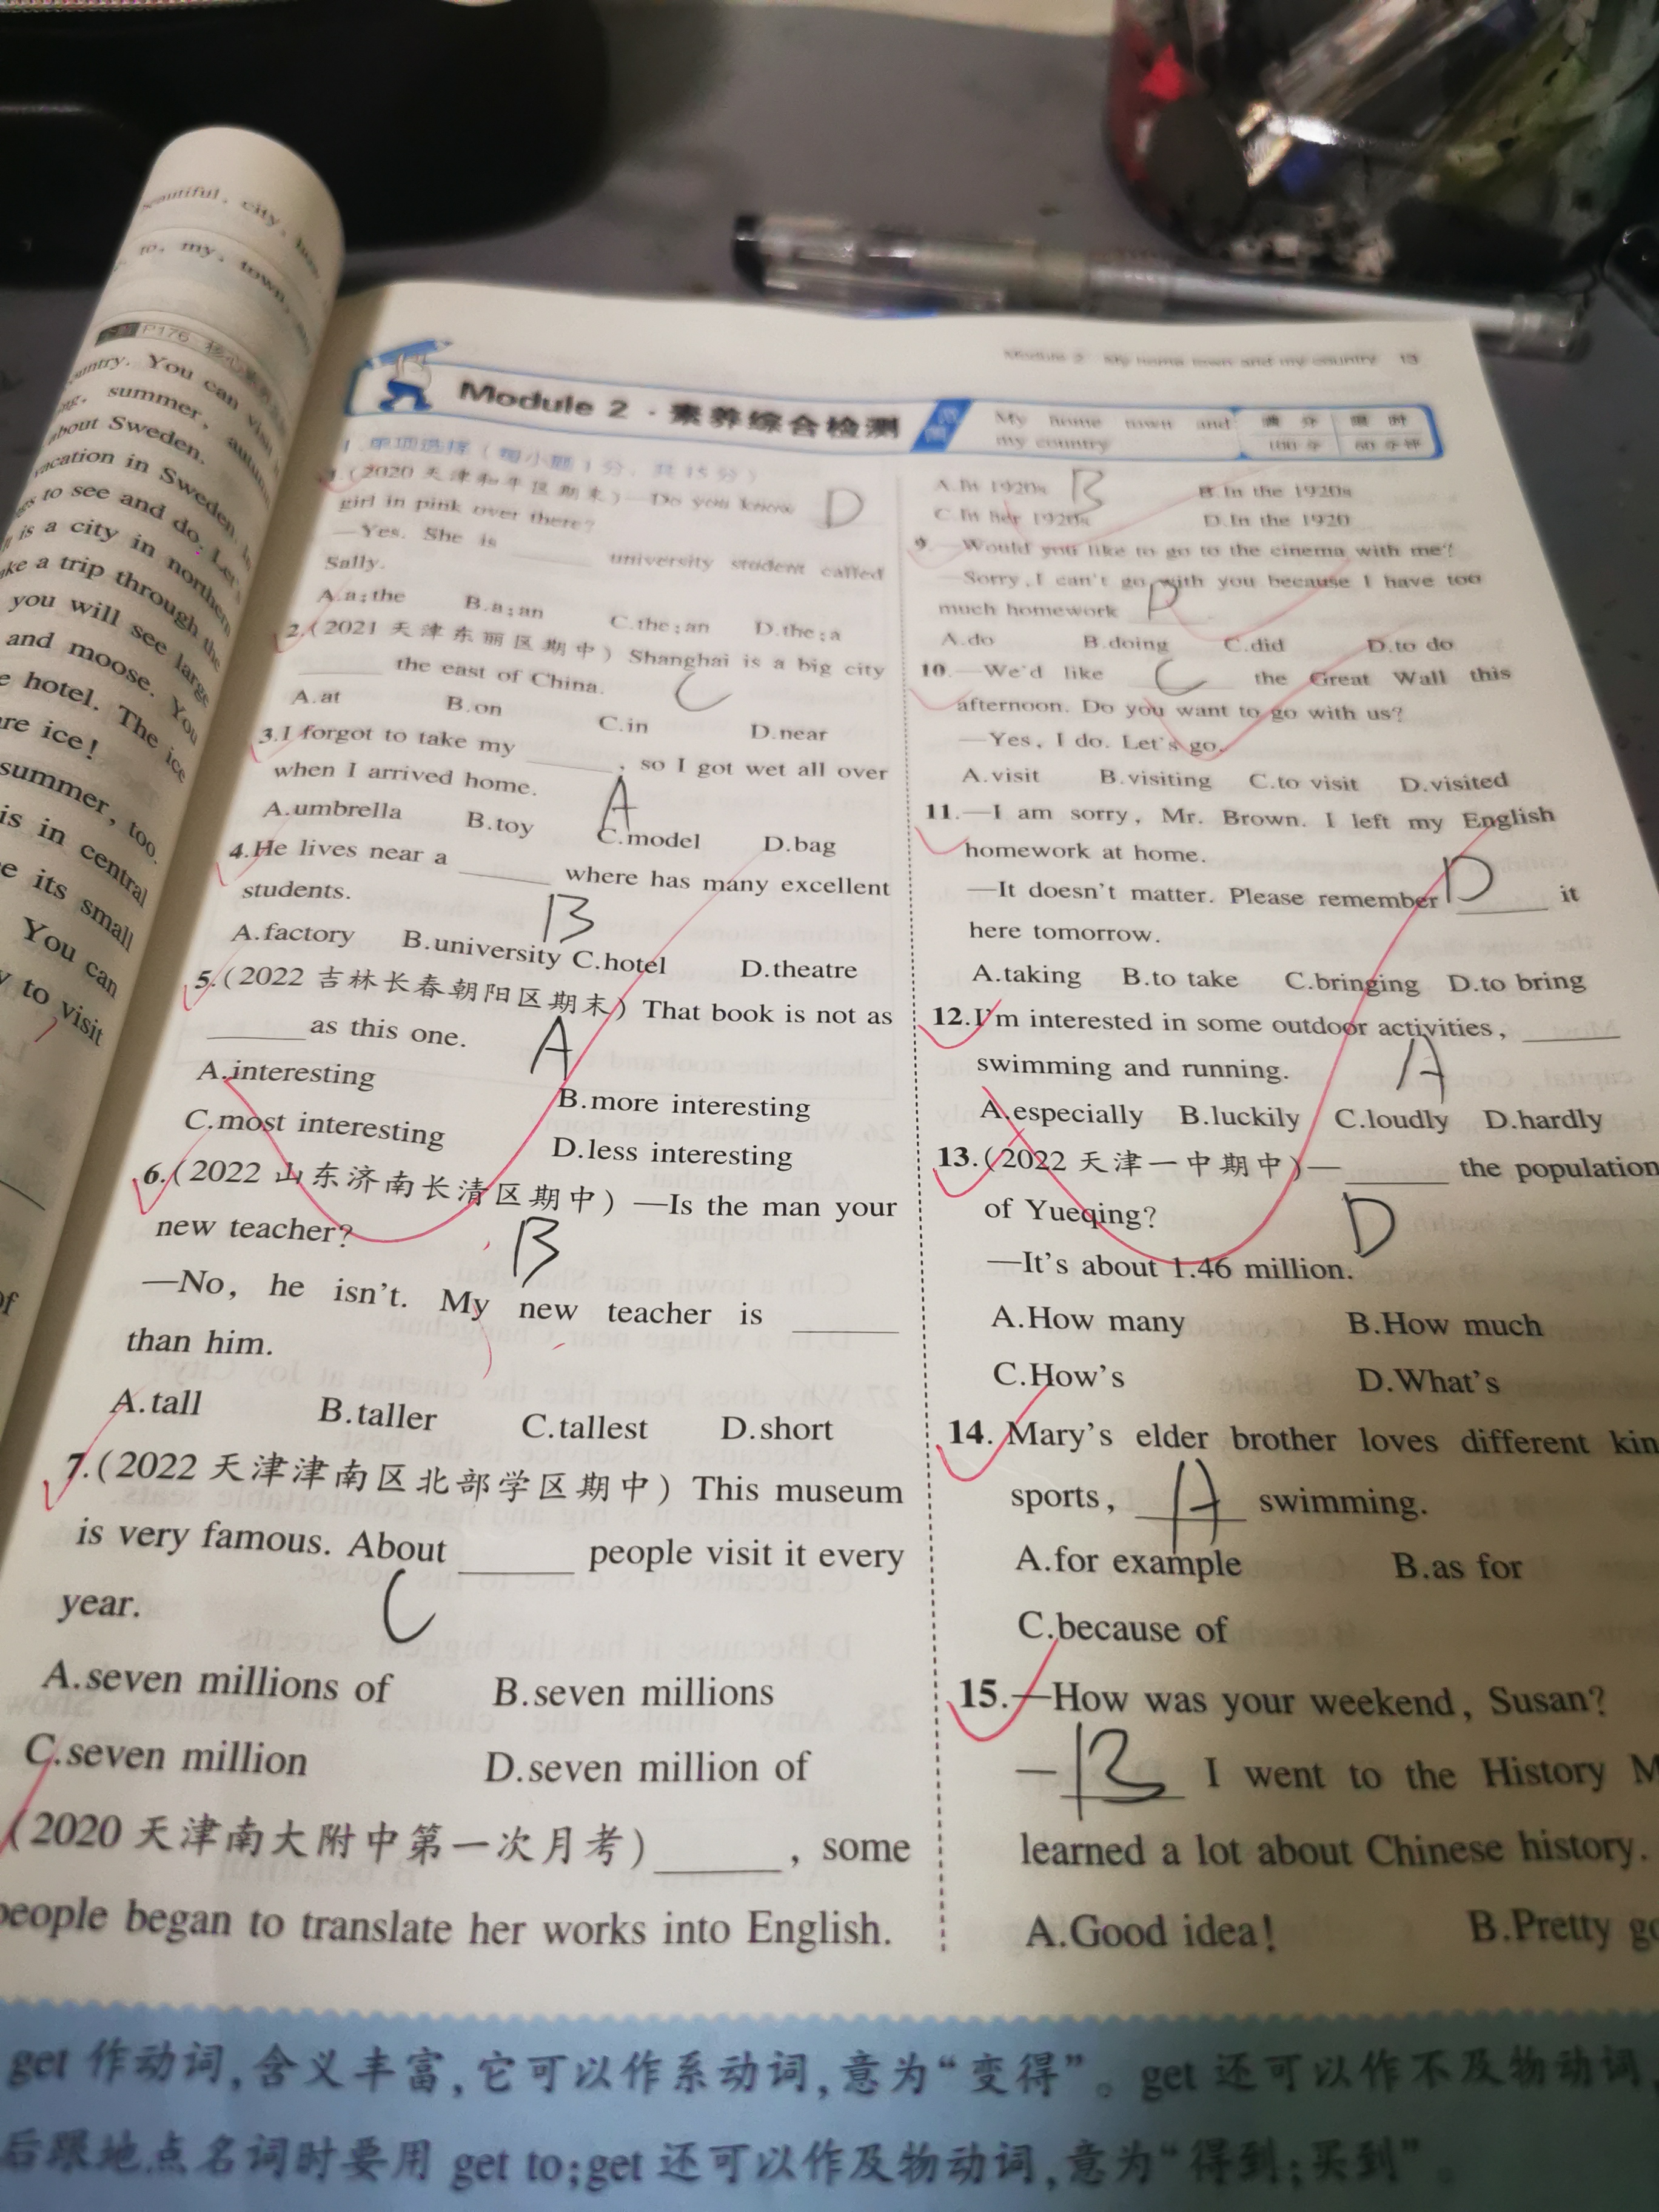 beautiful, city,
to, my, town,
P176
country. You can visit
summer, autumn
about Sweden.
vacation in Sweden.
to see and do. Let'
is a city in northern
take a trip through the
you will see large
and moose. You
e hotel. The ice
are ice!
summer, too.
is in central
e its small
You can
y to visit
of
Module 2 My home town and my country 13
Module 2 · 素养综合检测
My home town and
my country
满 分 限 时
100 分 60 分钟
Ⅰ.单项选择(每小题1分,共15分)
1.(2020 天津和平区期末)—Do you know D
girl in pink over there?
—Yes. She is ______ university student called
Sally.
A.a;the B.a;an C.the;an D.the;a
2.(2021 天津东丽区期中) Shanghai is a big city
______ the east of China. C
A.at B.on C.in D.near
3.I forgot to take my ______, so I got wet all over
when I arrived home. A
A.umbrella B.toy C.model D.bag
4.He lives near a ______ where has many excellent
students. B
A.factory B.university C.hotel D.theatre
5.(2022 吉林长春朝阳区期末) That book is not as
______ as this one. A
A.interesting B.more interesting
C.most interesting D.less interesting
6.(2022 山东济南长清区期中) —Is the man your
new teacher? B
—No, he isn't. My new teacher is ______
than him.
A.tall B.taller C.tallest D.short
7.(2022 天津津南区北部学区期中) This museum
is very famous. About ______ people visit it every
year. C
A.seven millions of B.seven millions
C.seven million D.seven million of
(2020 天津南大附中第一次月考)______, some
people began to translate her works into English.
A.In 1920s B B.In the 1920s
C.In her 1920s D.In the 1920
9.—Would you like to go to the cinema with me?
—Sorry, I can't go with you because I have too
much homework ______. D
A.do B.doing C.did D.to do
10.—We'd like C the Great Wall this
afternoon. Do you want to go with us?
—Yes, I do. Let's go.
A.visit B.visiting C.to visit D.visited
11.—I am sorry, Mr. Brown. I left my English
homework at home.
—It doesn't matter. Please remember D it
here tomorrow.
A.taking B.to take C.bringing D.to bring
12.I'm interested in some outdoor activities, ______
swimming and running. A
A.especially B.luckily C.loudly D.hardly
13.(2022 天津一中期中)—______ the population
of Yueqing? D
—It's about 1.46 million.
A.How many B.How much
C.How's D.What's
14. Mary's elder brother loves different kin
sports, A swimming.
A.for example B.as for
C.because of
15.—How was your weekend, Susan?
—B I went to the History M
learned a lot about Chinese history.
A.Good idea! B.Pretty go
get 作动词,含义丰富,它可以作系动词,意为“变得”。get 还可以作不及物动词,
后跟地点名词时要用 get to;get 还可以作及物动词,意为“得到;买到”。